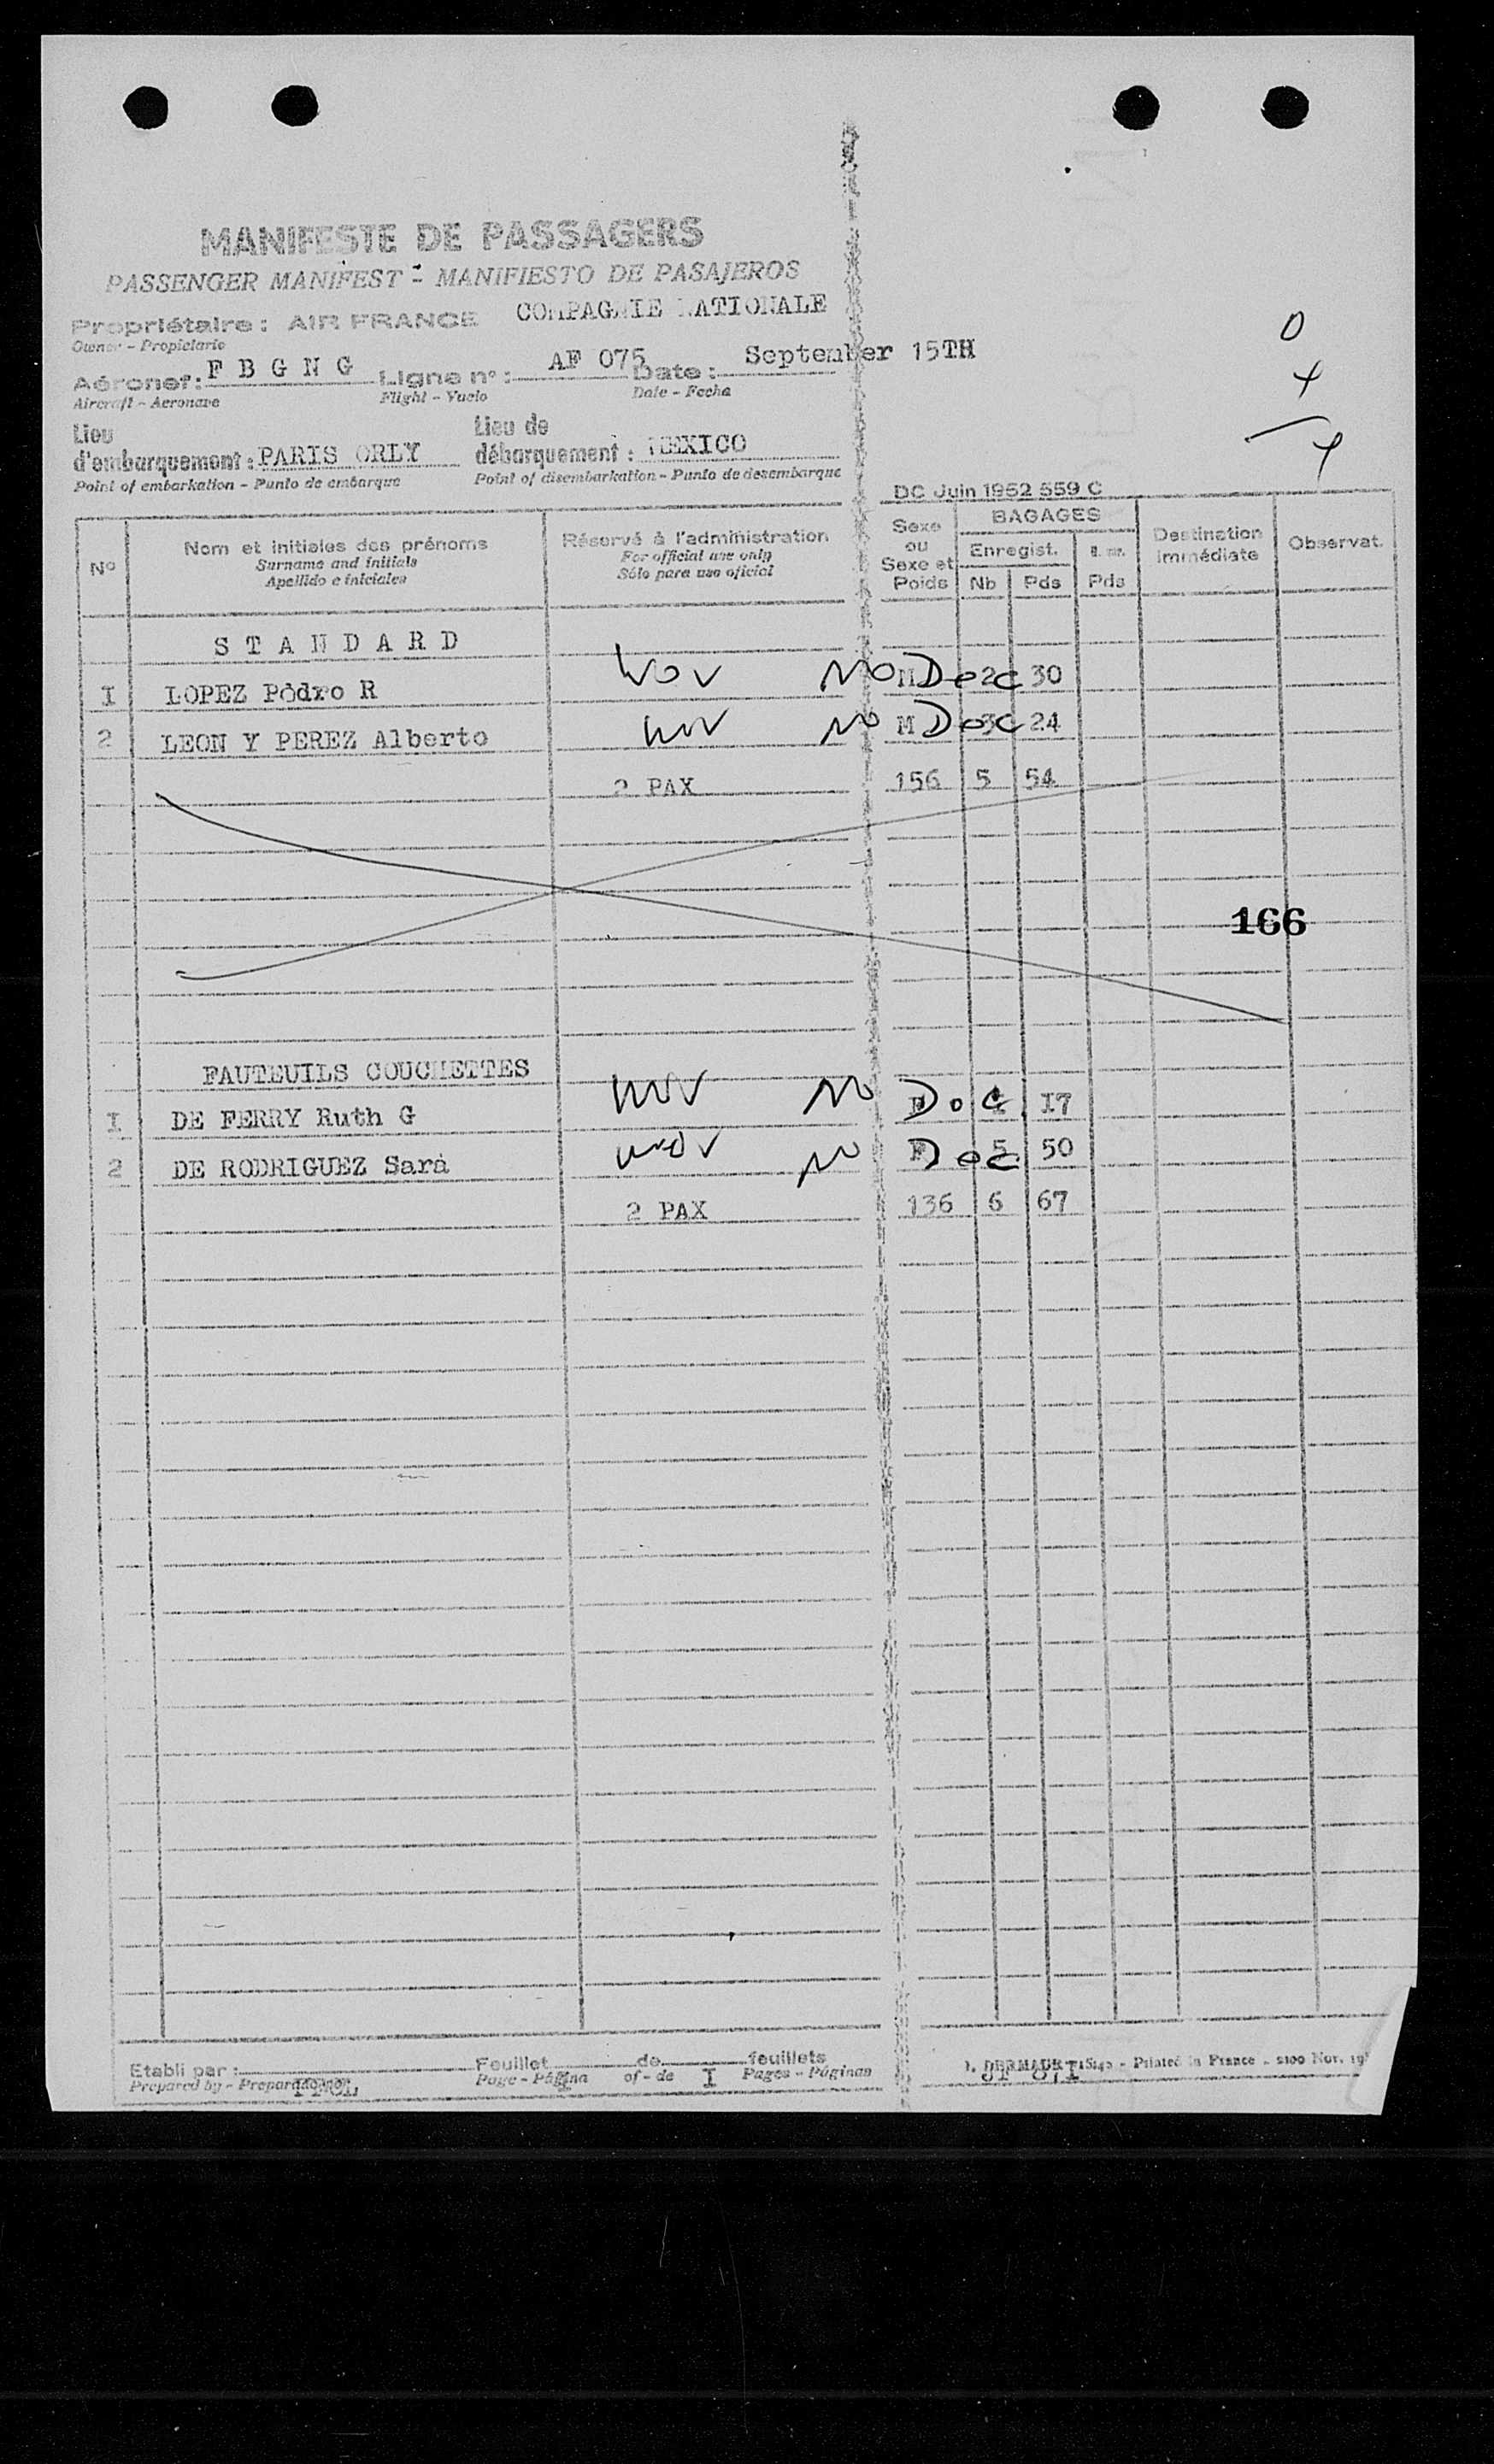 MANIFESTE DE PASSAGERS
PASSENGER MANIFEST - MANIFIESTO DE PASAJEROS
Propriétaire : AIR FRANCE COMPAGNIE NATIONALE
Owner - Propietario
Aéronef : F B G N G Ligne n° : AF 075 Date : September 15TH
Aircraft - Aeronave Flight - Vuelo Date - Fecha
Lieu d'embarquement : PARIS ORLY Lieu de débarquement : MEXICO
Point of embarkation - Punto de embarque Point of disembarkation - Punto de desembarque
0
4
4
DC Juin 1952 559 C
N° Nom et initiales des prénoms Réservé à l'administration Sexe ou Sexe et Poids BAGAGES Destination immédiate Observat.
Surname and initials For official use only Enregist.
Apellido e iniciales Sólo para uso oficial Nb Pds Pds
S T A N D A R D
I LOPEZ Pôdro R NO Doc M 2 30
2 LEON Y PEREZ Alberto NO Doc M 3 24
2 PAX 156 5 54
166
FAUTEUILS COUCHETTES
I DE FERRY Ruth G NO Doc I7
2 DE RODRIGUEZ Sarà NO Doc F 5 50
2 PAX 136 6 67
Etabli par : Feuillet de feuillets
Prepared by - Preparado por Page - Página I of - de I Pages - Páginas
Printed in France - 2100 Nov.